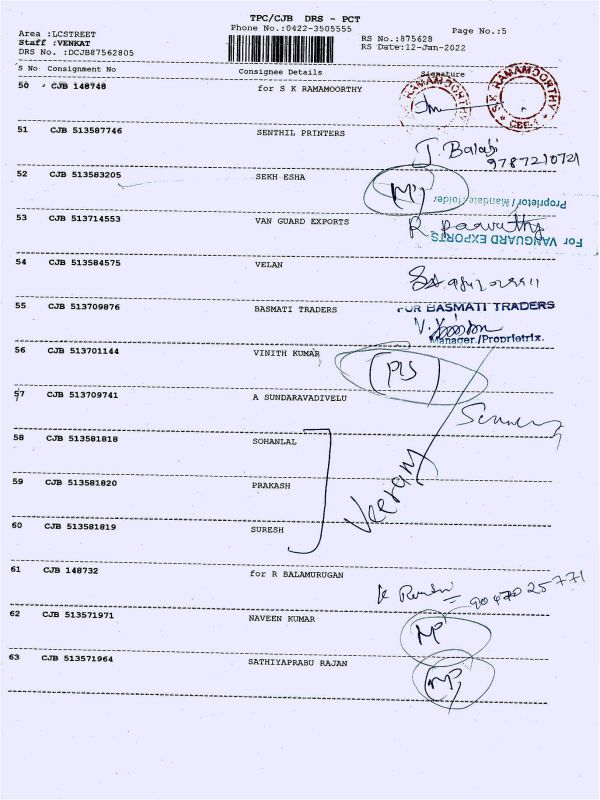 TPC/CJB DRS - PCT
Phone No.:0422-3505555
Page No.:5
Area :LCSTREET
Staff :VENKAT
DRS No. :DCJB87562805
RS No.:875628
RS Date:12-Jan-2022
S No Consignment No Consignee Details Signature
50 CJB 148748 for S K RAMAMOORTHY
S.K. RAMAMOORTHY
CBE-1
51 CJB 513587746 SENTHIL PRINTERS
J. Balaji
9787210721
52 CJB 513583205 SEKH ESHA
Proprietor / Mandate holder
53 CJB 513714553 VAN GUARD EXPORTS
For VANGUARD EXPORTS
54 CJB 513584575 VELAN
55 CJB 513709876 BASMATI TRADERS
FOR BASMATI TRADERS
Manager./Proprietrix.
56 CJB 513701144 VINITH KUMAR
57 CJB 513709741 A SUNDARAVADIVELU
58 CJB 513581818 SOHANLAL
59 CJB 513581820 PRAKASH
Veeram
60 CJB 513581819 SURESH
61 CJB 148732 for R BALAMURUGAN
62 CJB 513571971 NAVEEN KUMAR
63 CJB 513571964 SATHIYAPRABU RAJAN